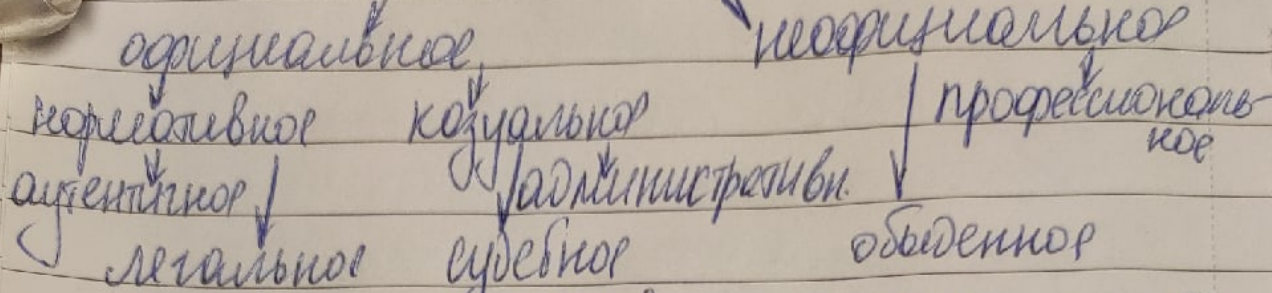 официальное неофициальное
нормативное козуальное профессиональ-
ное
аутентичное административн.
легальное судебное обыденное